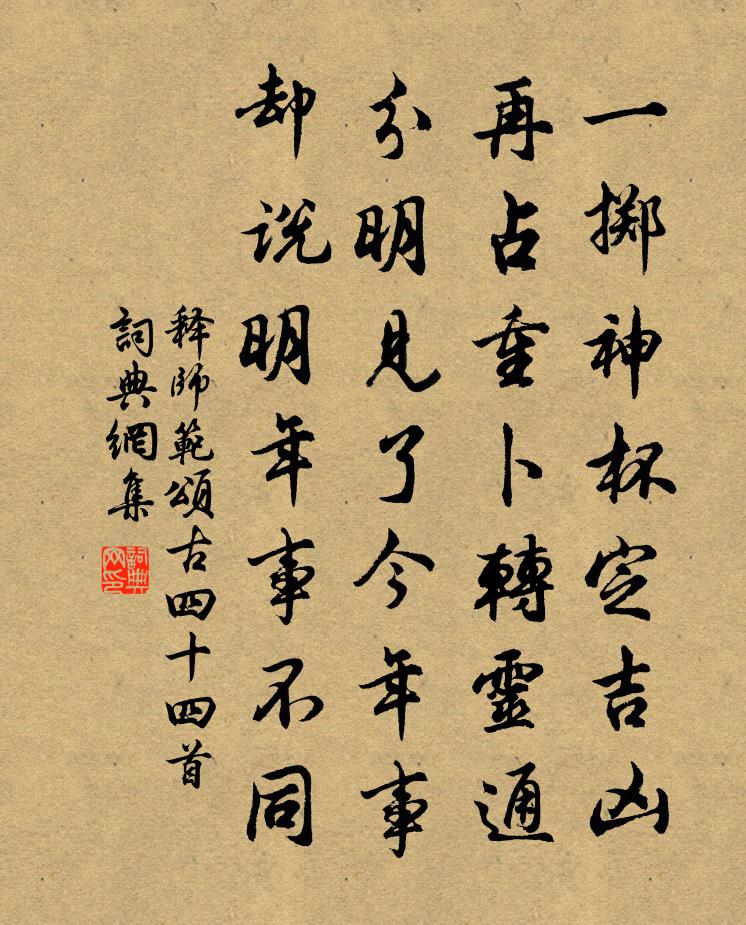 一掷神杯定吉凶
再占重卜轉靈通
分明見了今年事
却説明年事不同
释師範頌古四十四首
詞典網集
詞典网印